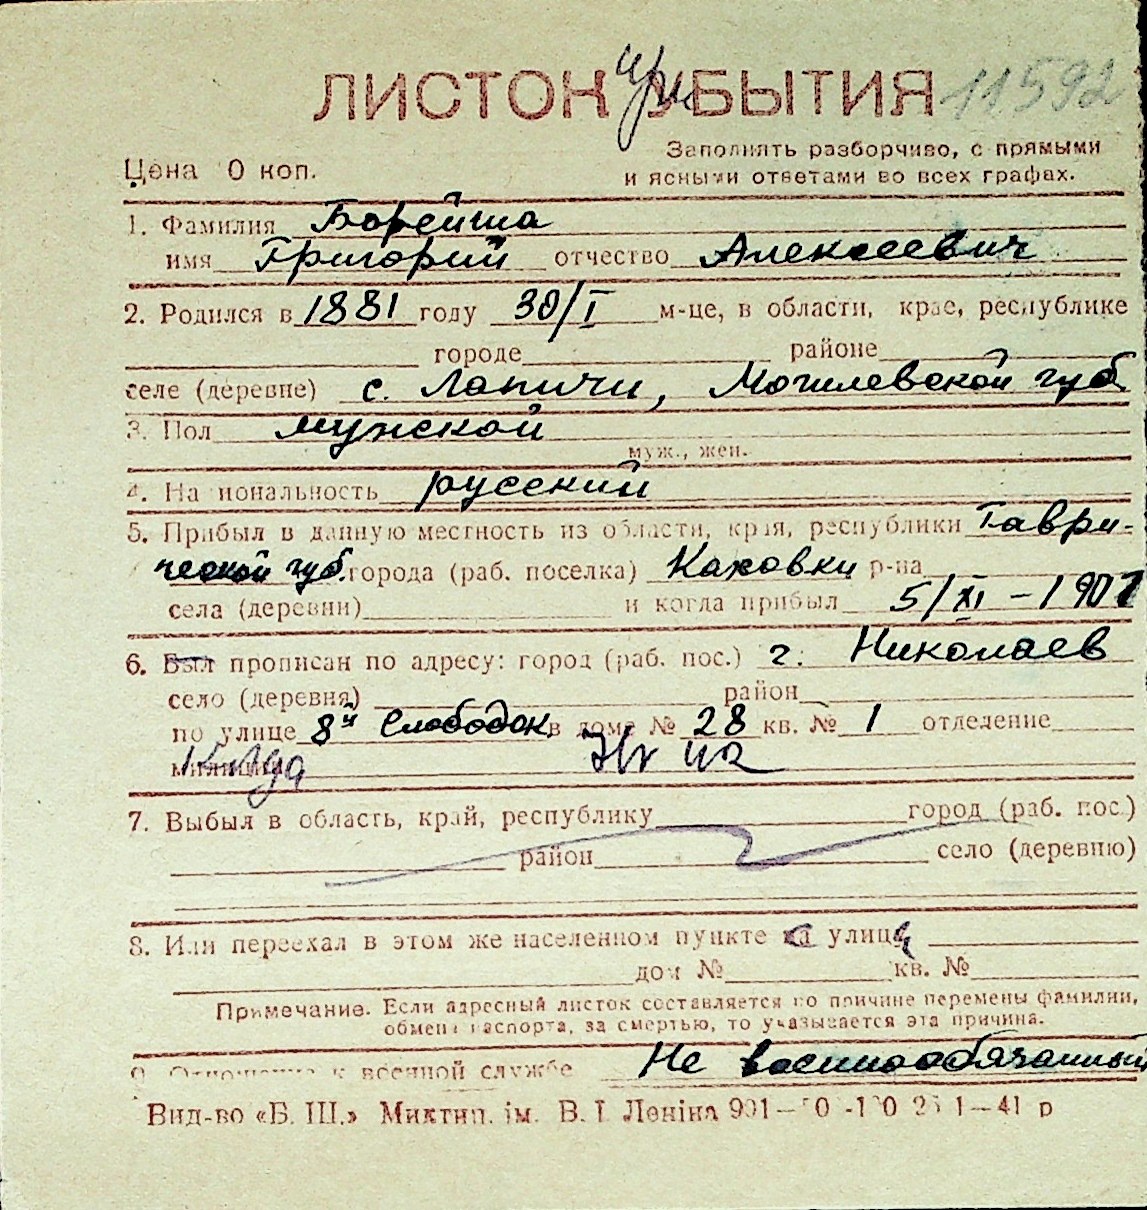 ЛИСТОК УБЫТИЯ 11592
при
Заполнять разборчиво, с прямыми
Цена 0 коп.
и ясными ответами во всех графах.
1. Фамилия Борейша
имя Григорий отчество Алексеевич
2. Родился в 1881 году 30/I м-це, в области, крае, республике
городе районе
селе (деревне) с. Лапичи, Могилевской губ.
3. Пол мужской
муж., жен.
4. Национальность русский
5. Прибыл в данную местность из области, края, республики Таври-
ческой губ. города (раб. поселка) Каховки р-на
села (деревни) и когда прибыл 5/XI - 1907
6. Был прописан по адресу: город (раб. пос.) г. Николаев
село (деревня) район
по улице 8й Слободок в доме № 28 кв. № 1 отделение
милиции
7. Выбыл в область, край, республику город (раб. пос.)
район село (деревню)
8. Или переехал в этом же населенном пункте с улицы
дом № кв. №
Примечание. Если адресный листок составляется по причине перемены фамилии,
обмена паспорта, за смертью, то указывается эта причина.
9. Отношение к военной службе Не военнообязанный
Вид-во «Б. Ш.» Миктип. ім. В. І. Леніна 1—41 р